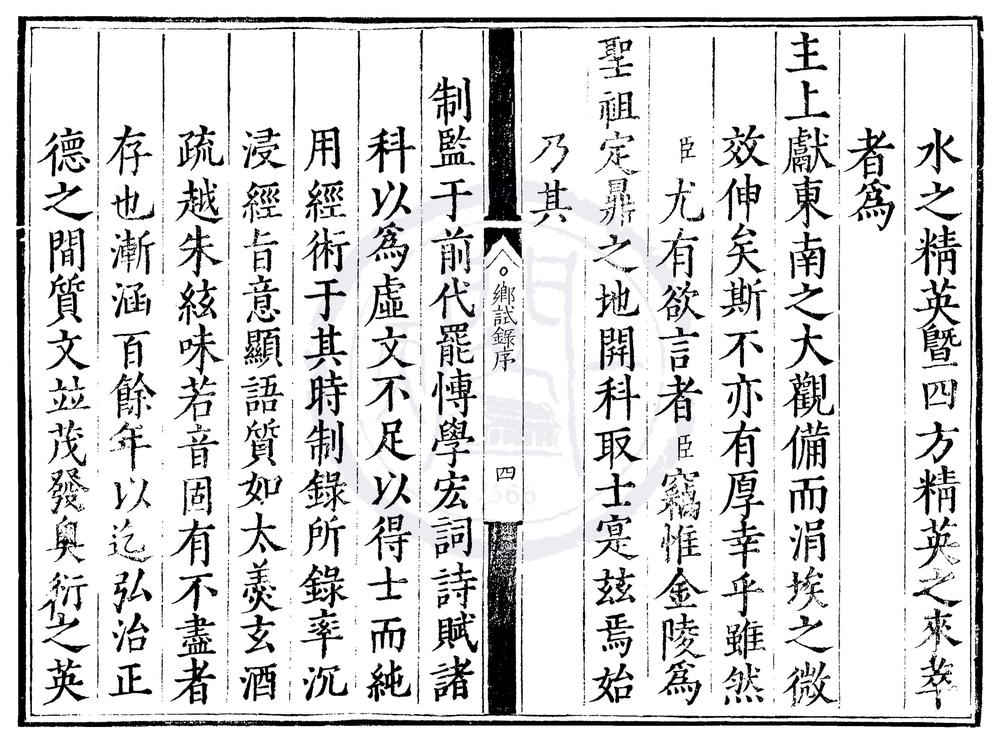 水之精英曁四方精英之來萃
者爲
主上獻東南之大觀備而涓埃之微
效伸矣斯不亦有厚幸乎雖然
臣尤有欲言者臣竊惟金陵爲
聖祖定鼎之地開科取士寔茲焉始
乃其
鄉試錄序
四
制監于前代罷慱學宏詞詩賦諸
科以爲虛文不足以得士而純
用經術于其時制錄所錄率沉
浸經旨意顯語質如太羹玄酒
疏越朱絃味若音固有不盡者
存也漸涵百餘年以迄弘治正
德之間質文並茂發奥衍之英